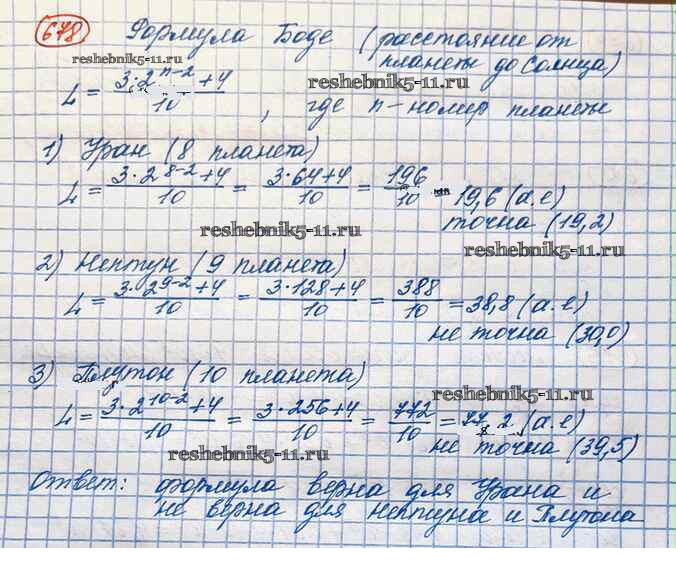 678 Формула Боде (расстояние от
планеты до Солнца)
reshebnik5-11.ru
reshebnik5-11.ru
L = (3·2^(n-2)+4)/10 , где n - номер планеты
1) Уран (8 планета)
L = (3·2^(8-2)+4)/10 = (3·64+4)/10 = 196/10 = 19,6 (а.е)
точна (19,2)
reshebnik5-11.ru
reshebnik5-11.ru
2) Нептун (9 планета)
L = (3·2^(9-2)+4)/10 = (3·128+4)/10 = 388/10 = 38,8 (а.е)
не точна (30,0)
3) Плутон (10 планета)
reshebnik5-11.ru
L = (3·2^(10-2)+4)/10 = (3·256+4)/10 = 772/10 = 77,2 (а.е)
не точна (39,5)
reshebnik5-11.ru
Ответ: формула верна для Урана и
не верна для Нептуна и Плутона